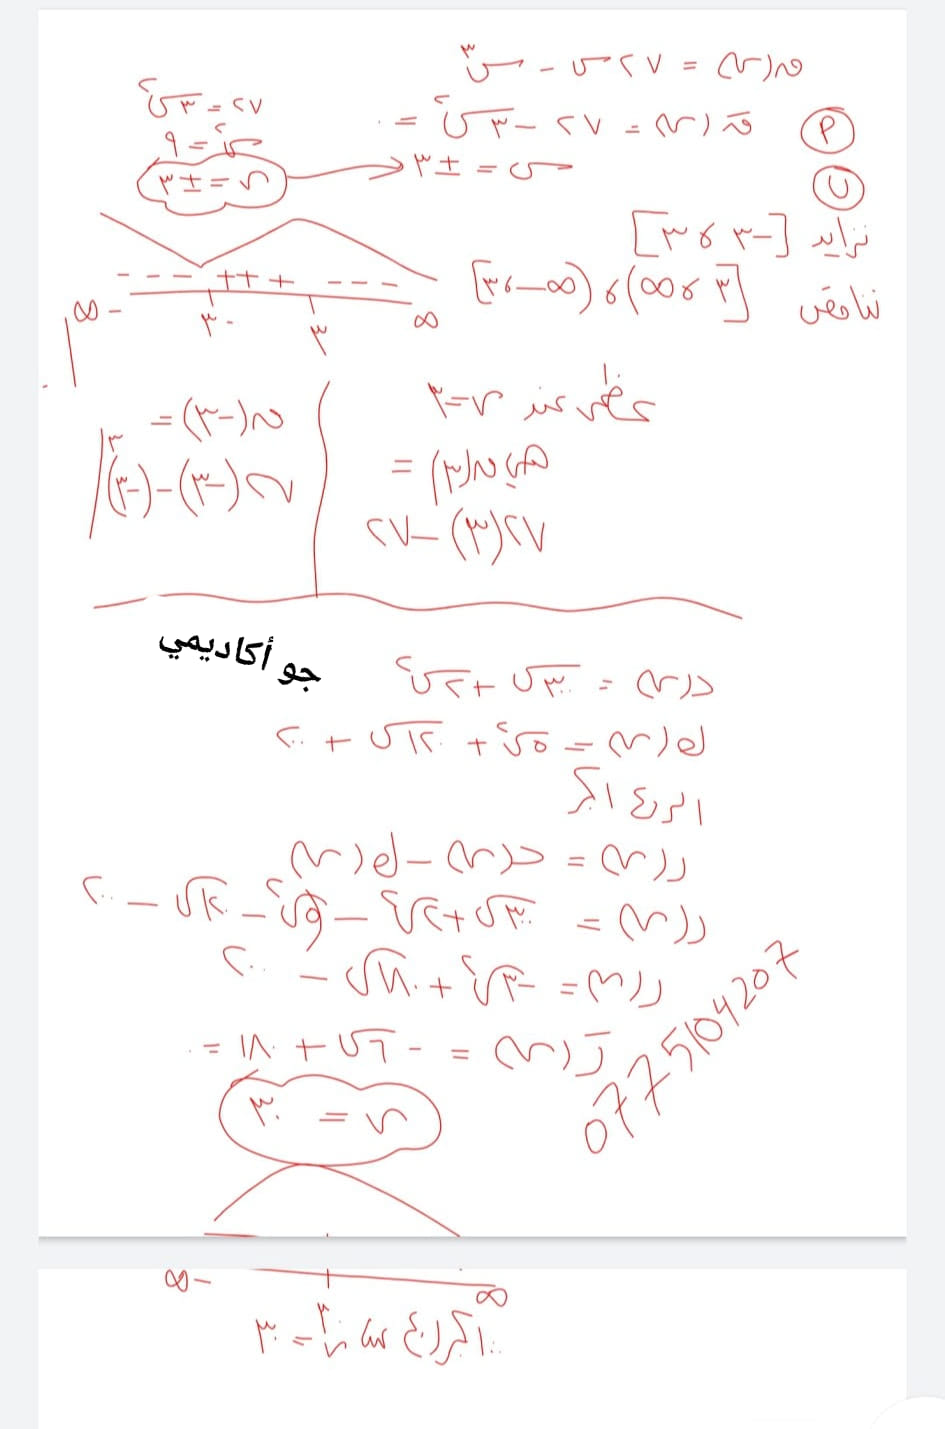 ق(س) = ٢٧س - س٣
أ
قَ(س) = ٢٧ - ٣س٢ = ٠
٢٧ = ٣س٢
س٢ = ٩
س = ±٣
س = ±٣
ب
تزايد [-٣ ، ٣]
تناقص [٣ ، ∞) ، (-∞ ، -٣]
- - - + + + - - -
-∞ -٣ ٣ ∞
عظمى عند س=٣
هي ق(٣) =
٢٧(٣) - ٢٧
ق(-٣) =
٢٧(-٣) - (-٣)٣
جو أكاديمي
د(س) = ٣٠٠س + ٢س٢
ك(س) = ٥س٢ + ١٢٠س + ٢٠٠
الربح أكبر
ر(س) = د(س) - ك(س)
ر(س) = ٣٠٠س + ٢س٢ - ٥س٢ - ١٢٠س - ٢٠٠
ر(س) = -٣س٢ + ١٨٠س - ٢٠٠
رَ(س) = -٦س + ١٨٠ = ٠
س = ٣٠
0775104207
-∞ ٣٠ ∞
∴ أكبر ربح عندما س = ٣٠